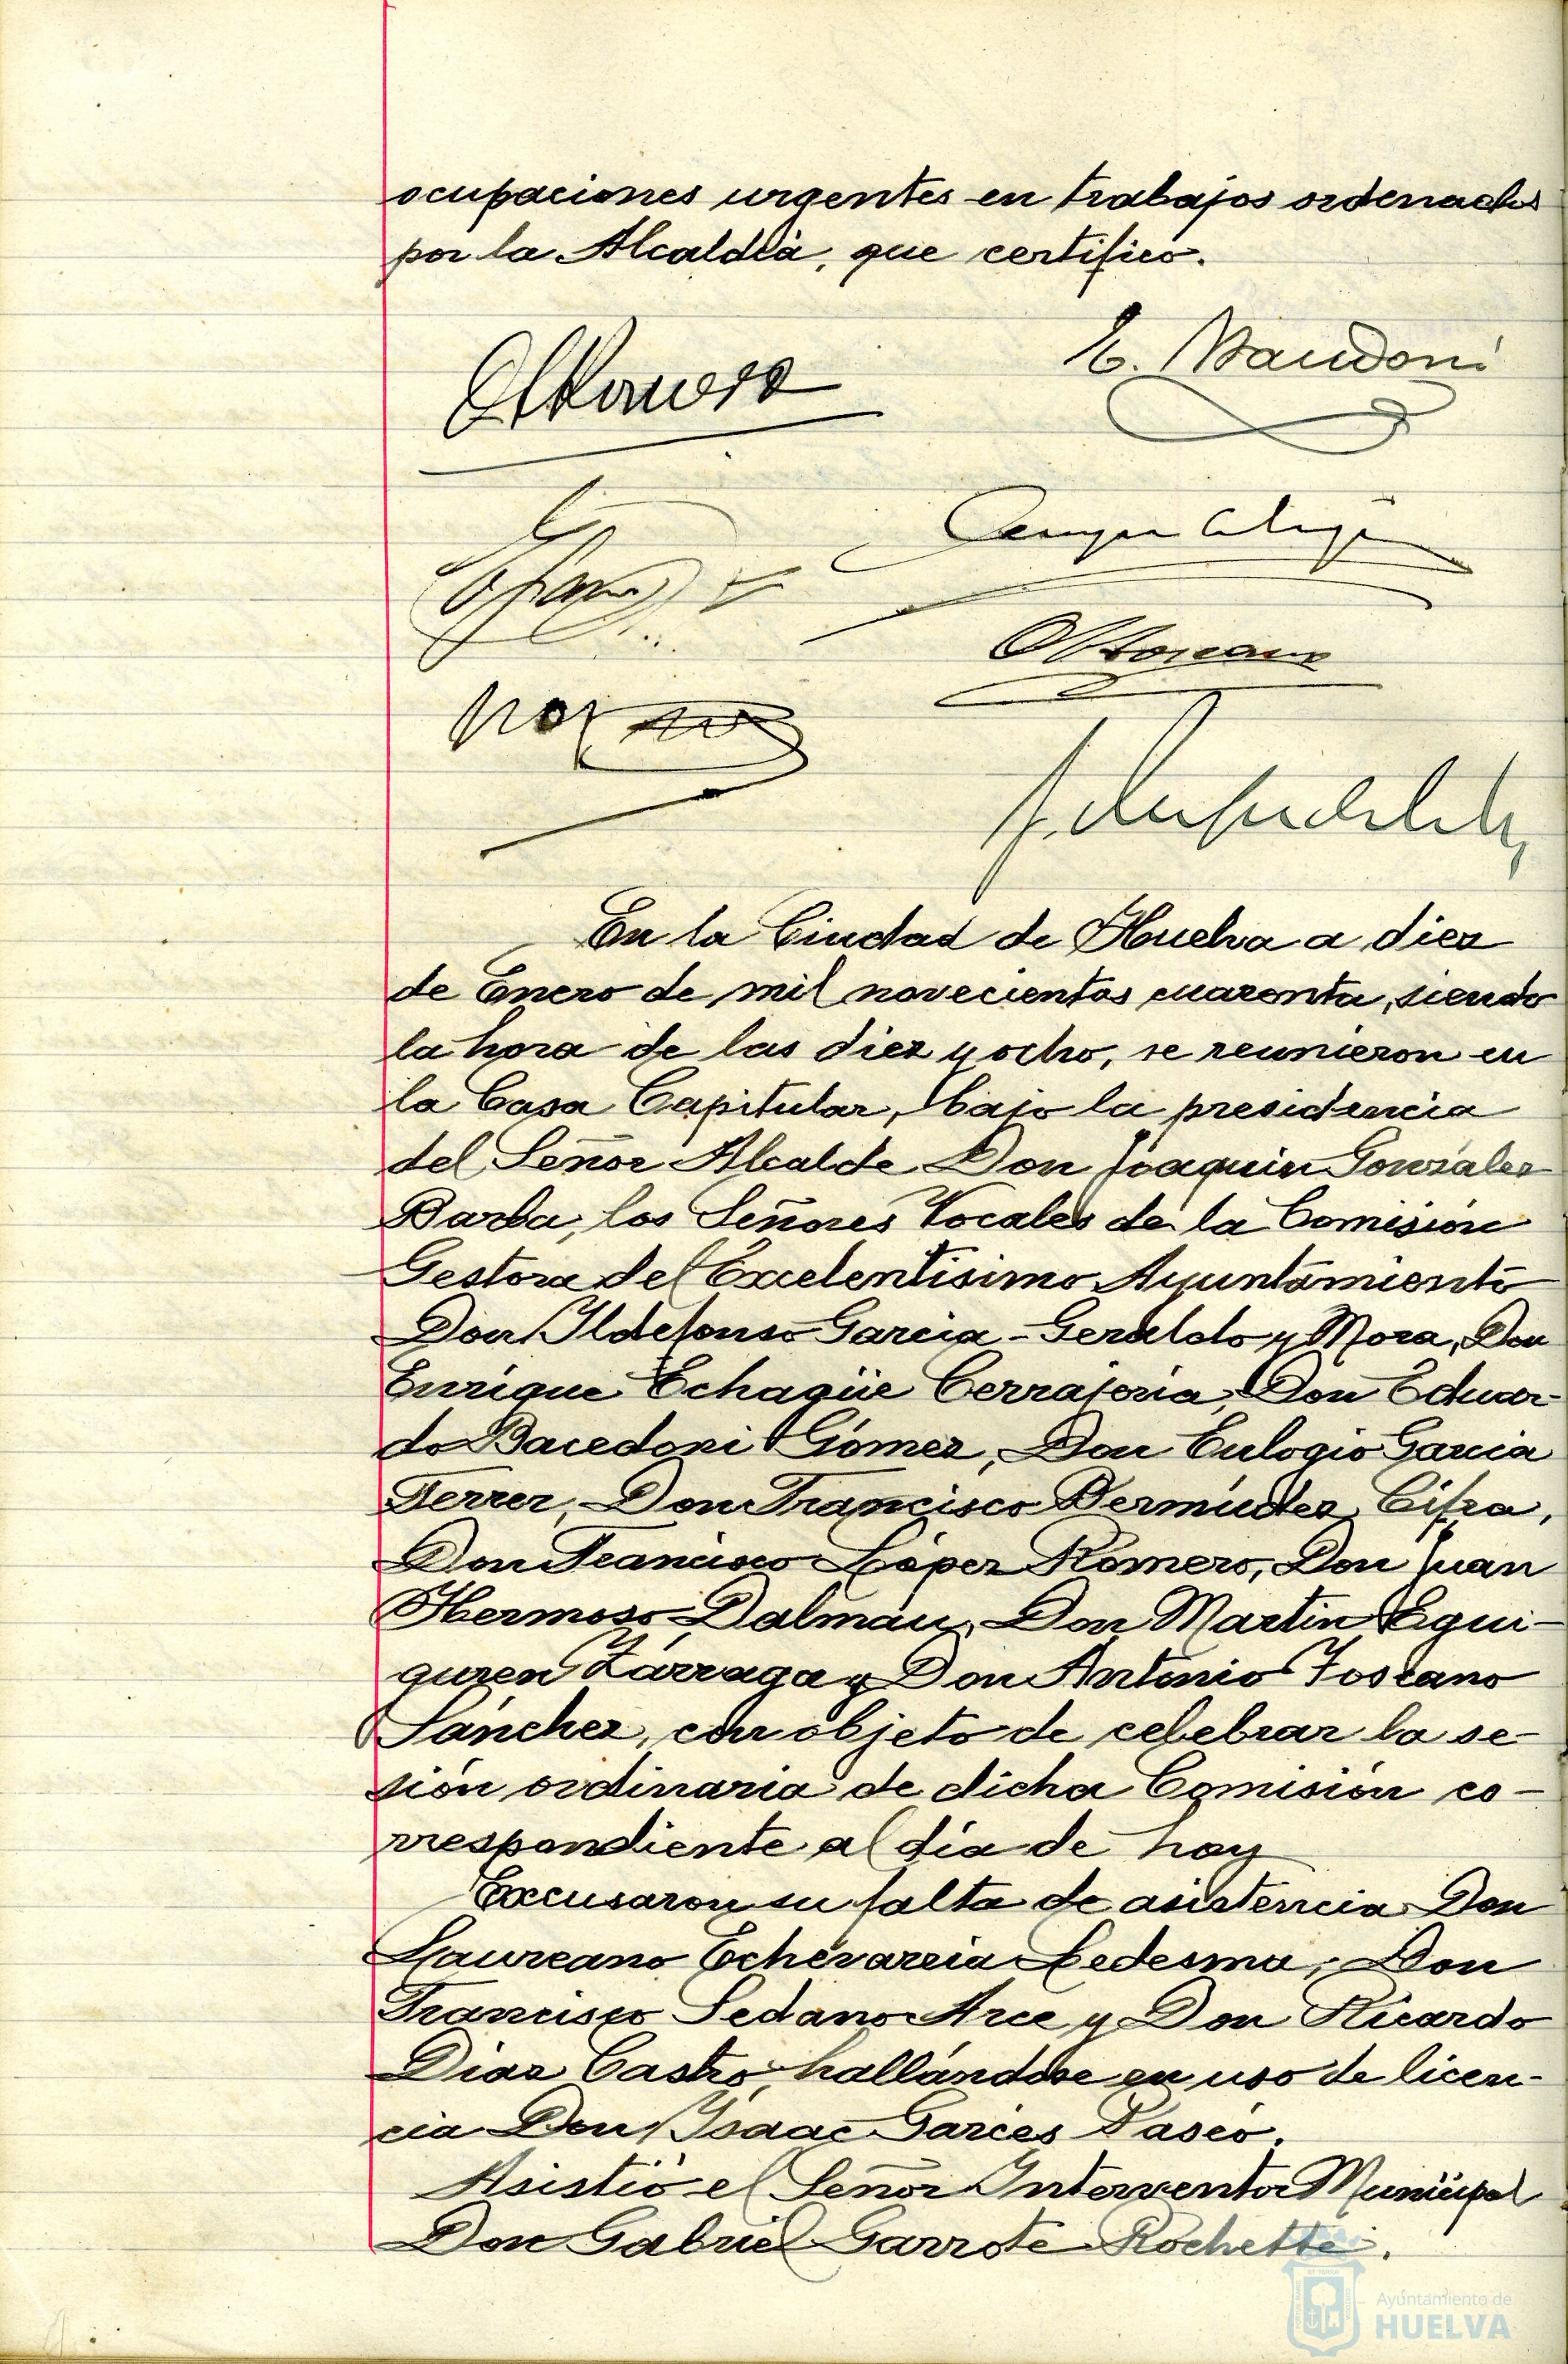 ocupaciones urgentes en trabajos ordenados
por la Alcaldía, que certifico.
En la Ciudad de Huelva a diez
de Enero de mil novecientos cuarenta, siendo
la hora de las diez y ocho, se reunieron en
la Casa Capitular, bajo la presidencia
del Señor Alcalde Don Joaquin González
Barba, los Señores Vocales de la Comisión
Gestora del Excelentísimo Ayuntamiento
Don Ildefonso Garcia-Geraldo y Mora, Don
Enrique Echagüe Cerrajería, Don Eduar-
do Bacedoni Gómez, Don Eulogio Garcia
Ferrer, Don Francisco Bermúdez Cifra,
Don Francisco López Romero, Don Juan
Hermoso Dalmau, Don Martín Egui-
guren Zárraga y Don Antonio Toscano
Sánchez, con objeto de celebrar la se-
sión ordinaria de dicha Comisión co-
rrespondiente al día de hoy
Excusaron su falta de asistencia Don
Laureano Echevarria Ledesma, Don
Francisco Sedano Arce y Don Ricardo
Diaz Castro, hallándose en uso de licen-
cia Don Isaac Garcés
Asistió el Señor Interventor Municipal
Don Gabriel Garrote Rochette.
Ayuntamiento de
HUELVA